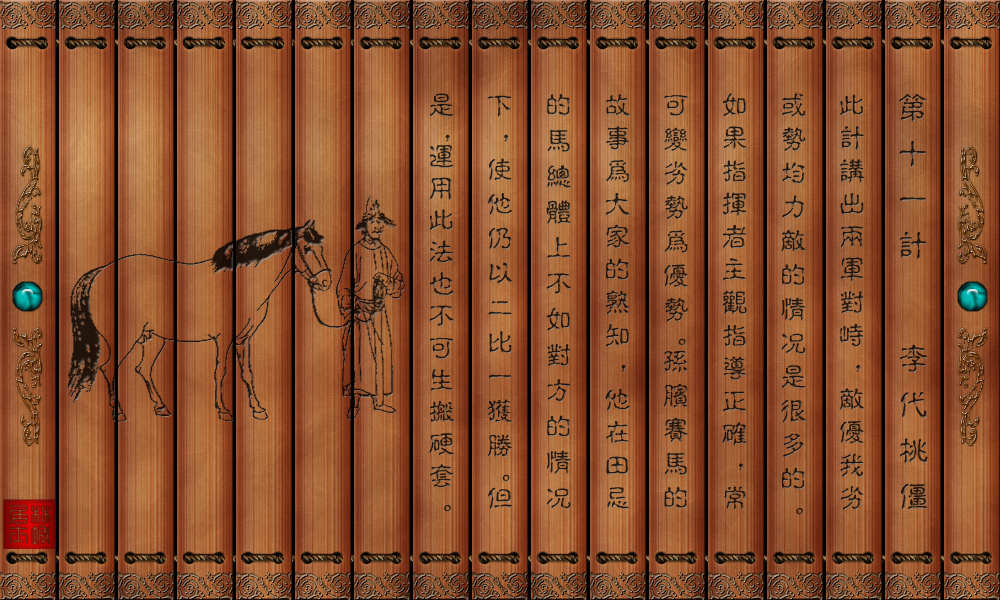 第十一計 李代挑僵
此計講出兩軍對峙，敵優我劣
或勢均力敵的情况是很多的。
如果指揮者主觀指導正確，常
可變劣勢爲優勢。孫臏賽馬的
故事爲大家的熟知，他在田忌
的馬總體上不如對方的情况
下，使他仍以二比一獲勝。但
是，運用此法也不可生搬硬套。